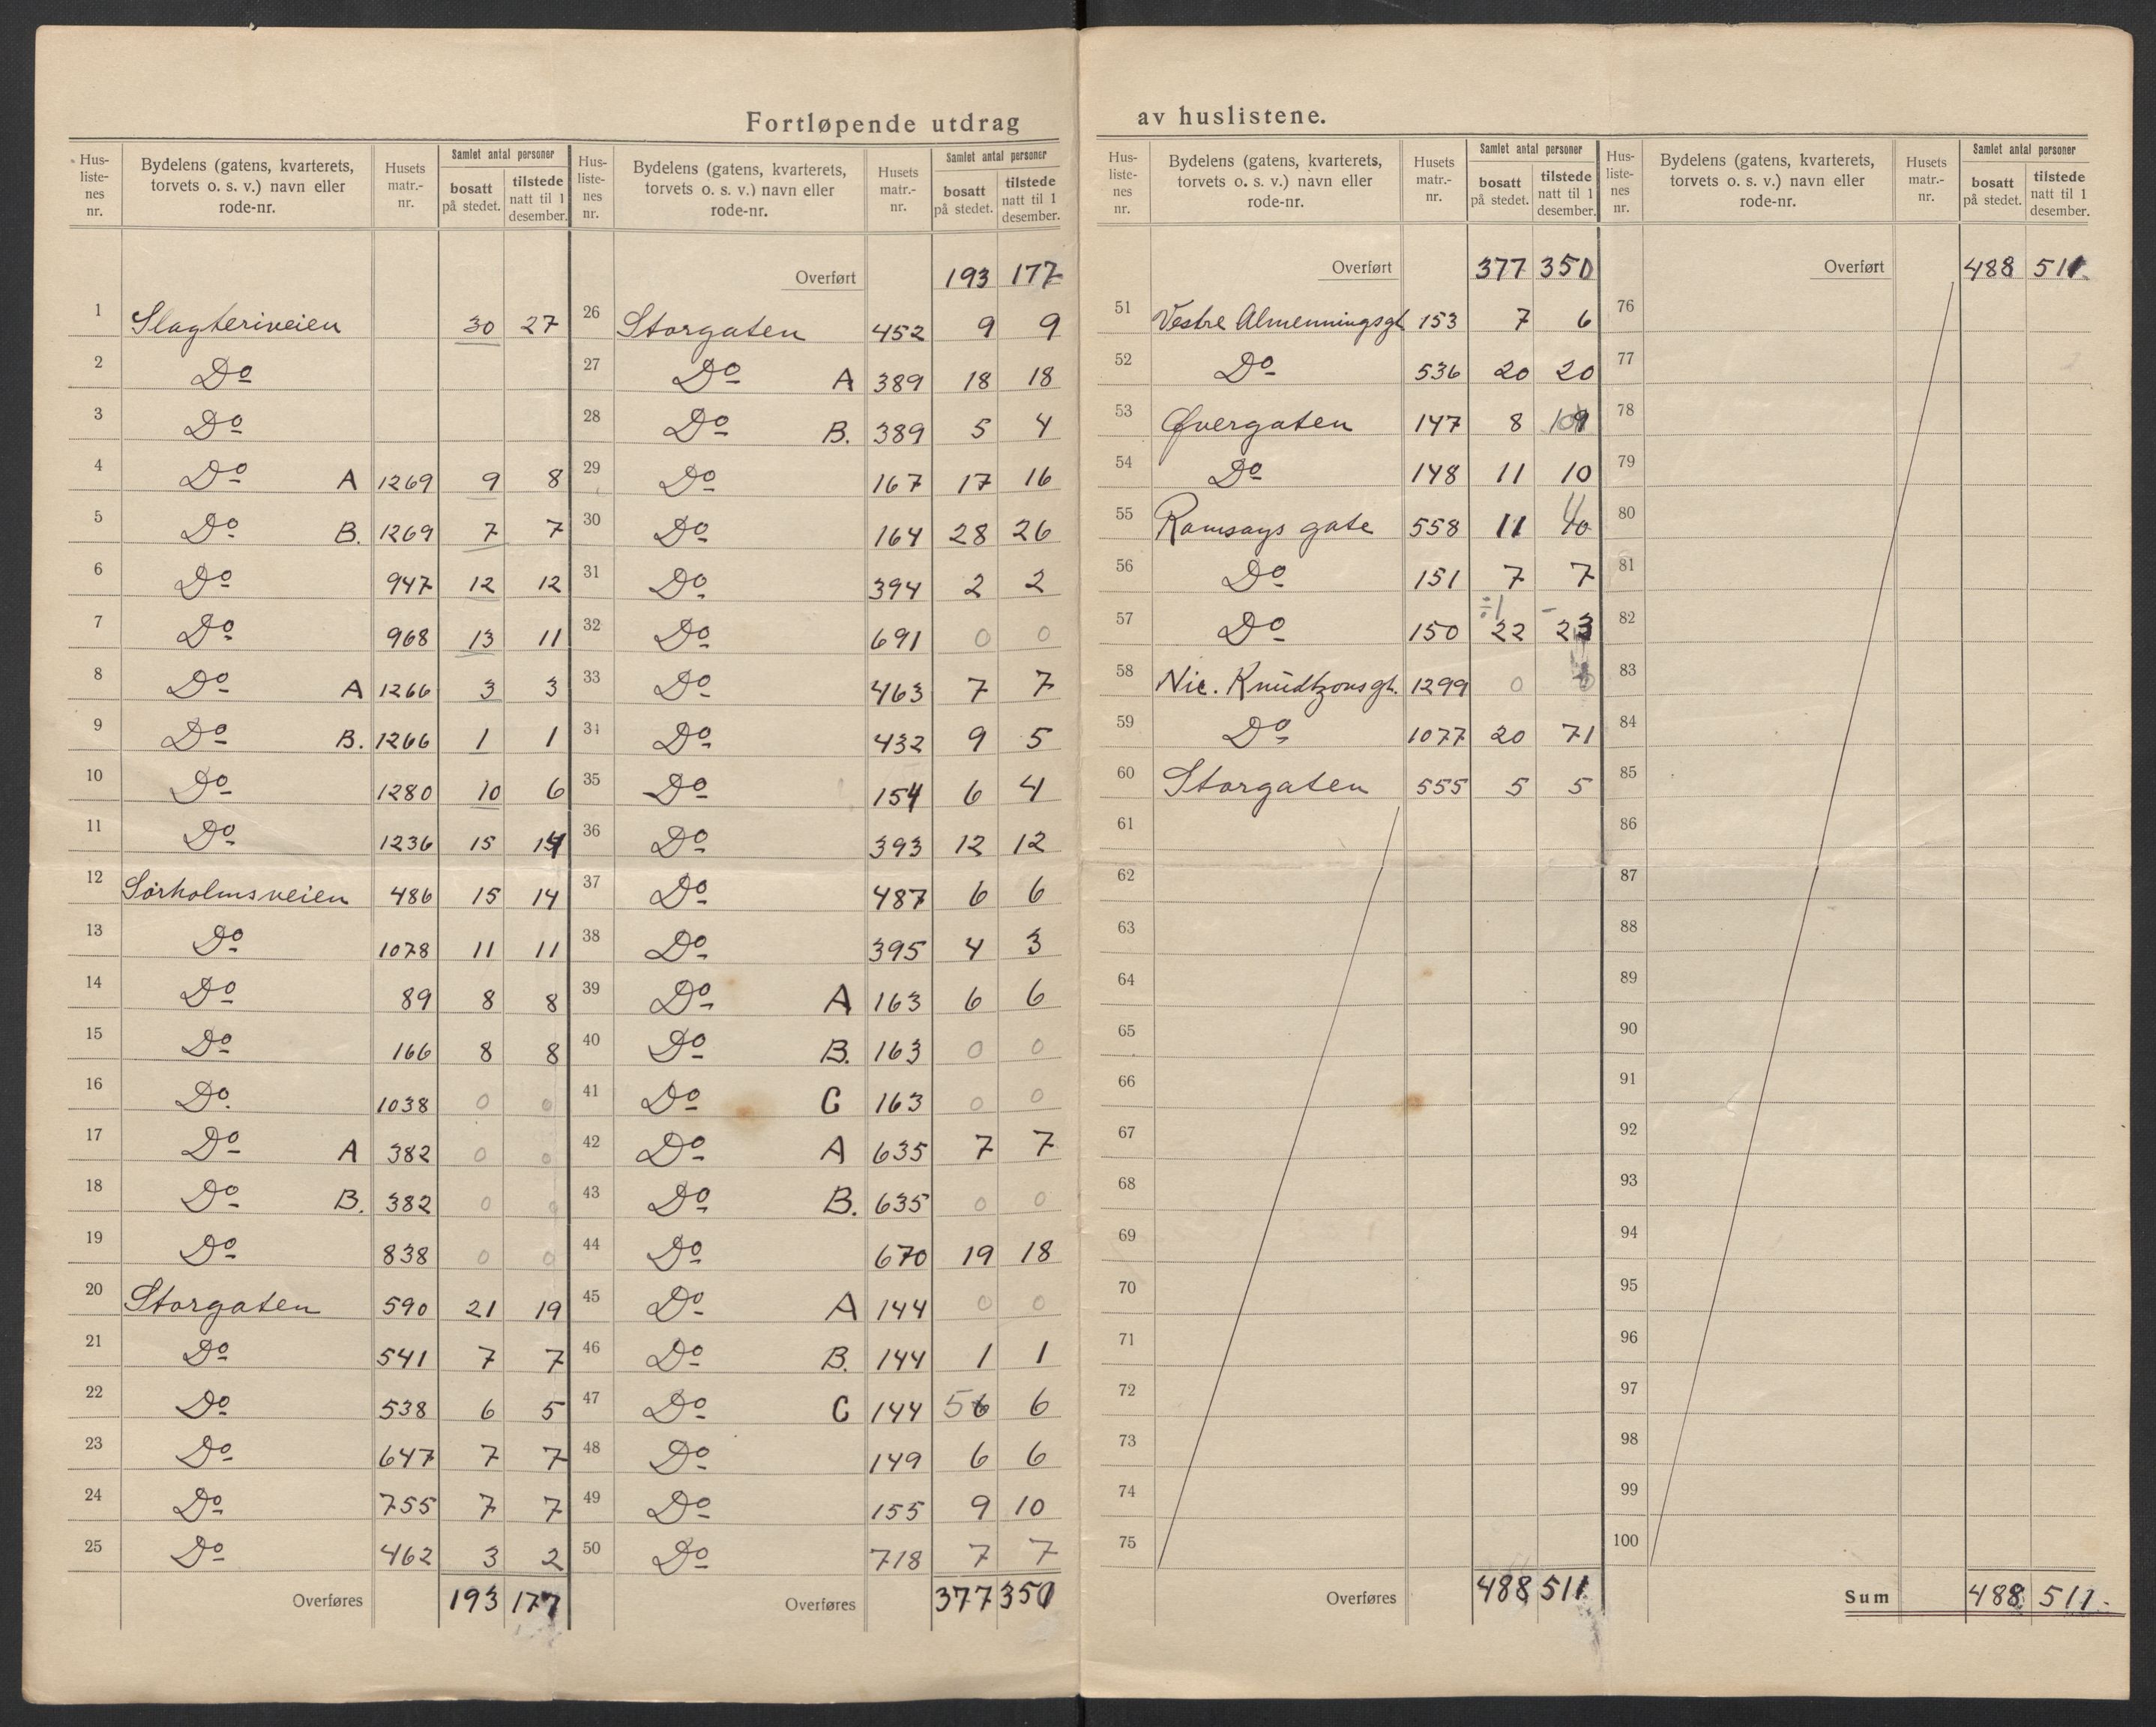 Fortløpende utdrag av huslistene.
Hus-liste-nes nr. | Bydelens (gatens, kvarterets, torvets o. s. v.) navn eller rode-nr. | Husets matr.-nr. | Samlet antal personer bosatt på stedet. | tilstede natt til 1 desember.
1 Slagteriveien 30 27
2 Do
3 Do
4 Do A 1269 9 8
5 Do B. 1269 7 7
6 Do 947 12 12
7 Do 968 13 11
8 Do A 1266 3 3
9 Do B. 1266 1 1
10 Do 1280 10 6
11 Do 1236 15 14
12 Sørholmsveien 486 15 14
13 Do 1078 11 11
14 Do 89 8 8
15 Do 166 8 8
16 Do. 1038 0 0
17 Do A 382 0 0
18 Do B. 382 0 0
19 Do 838 0 0
20 Storgaten 590 21 19
21 Do 541 7 7
22 Do 538 6 5
23 Do 647 7 7
24 Do 755 7 7
25 Do 462 3 2
Overføres 193 177
Hus-liste-nes nr. | Bydelens (gatens, kvarterets, torvets o. s. v.) navn eller rode-nr. | Husets matr.-nr. | Samlet antal personer bosatt på stedet. | tilstede natt til 1 desember.
Overført 193 177
26 Storgaten 452 9 9
27 Do A 389 18 18
28 Do B. 389 5 4
29 Do 167 17 16
30 Do 164 28 26
31 Do 394 2 2
32 Do 691 0 0
33 Do 463 7 7
34 Do 432 9 5
35 Do 154 6 4
36 Do 393 12 12
37 Do 487 6 6
38 Do 395 4 3
39 Do A 163 6 6
40 Do B. 163 0 0
41 Do C 163 0 0
42 Do A 635 7 7
43 Do B. 635 0 0
44 Do 670 19 18
45 Do A 144 0 0
46 Do B. 144 1 1
47 Do C 144 5 6 6
48 Do 149 6 6
49 Do 155 9 10
50 Do 718 7 7
Overføres 377 350
Hus-liste-nes nr. | Bydelens (gatens, kvarterets, torvets o. s. v.) navn eller rode-nr. | Husets matr.-nr. | Samlet antal personer bosatt på stedet. | tilstede natt til 1 desember.
Overført 377 350
51 Vestre Almenningsgt 153 7 6
52 Do 536 20 20
53 Øvergaten 147 8
54 Do 148 11 10
55 Ramsays gate 558 11
56 Do 151 7 7
57 Do 150 ÷1 22 - 23
58 Nic. Knudtzonsgt. 1299 0
59 Do 1077 20 71
60 Storgaten 555 5 5
61
62
63
64
65
66
67
68
69
70
71
72
73
74
75
Overføres 488 511
Hus-liste-nes nr. | Bydelens (gatens, kvarterets, torvets o. s. v.) navn eller rode-nr. | Husets matr.-nr. | Samlet antal personer bosatt på stedet. | tilstede natt til 1 desember.
Overført 488 511.
76
77
78
79
80
81
82
83
84
85
86
87
88
89
90
91
92
93
94
95
96
97
98
99
100
Sum 488 511.